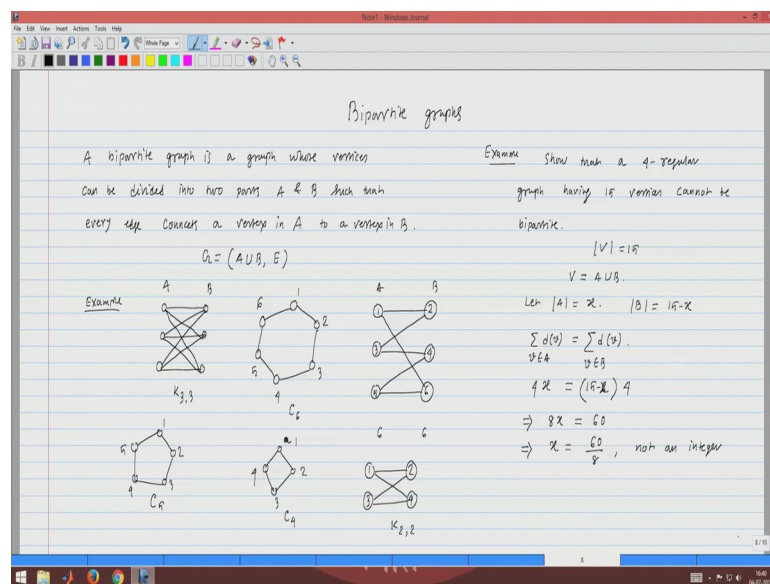 Note1 - Windows Journal
File Edit View Insert Actions Tools Help
Whole Page
B I
Bipartite graphs
A bipartite graph is a graph whose vertices
can be divided into two parts A & B such that
every edge connects a vertex in A to a vertex in B.
G = (A∪B, E)
Example
A B
K3,3
6 1 2 3 4 5
C6
A B
1 2
3 4
5 6
6 6
5 1 2 3 4
C5
a 1
4 2
3
C4
1 2
3 4
K2,2
Example Show that a 4-regular
graph having 15 vertices cannot be
bipartite.
|V| = 15
V = A∪B.
Let |A| = x. |B| = 15-x
∑ d(v) = ∑ d(v).
v∈A v∈B
4x = (15-x) 4
⇒ 8x = 60
⇒ x = 60/8, not an integer
8 / 10
8
16:40